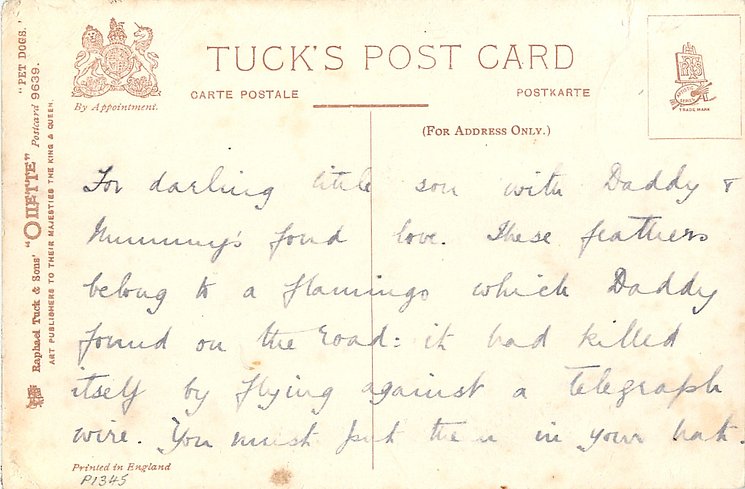 TUCK'S POST CARD
By Appointment.
CARTE POSTALE
POSTKARTE
(FOR ADDRESS ONLY.)
ARTISTIC SERIES
TRADE MARK
Raphael Tuck & Sons' "OILETTE" Postcard 9639. "PET DOGS."
ART PUBLISHERS TO THEIR MAJESTIES THE KING & QUEEN.
For darling little son with Daddy &
Mummy's fond love. These feathers
belong to a flamingo which Daddy
found on the road: it had killed
itself by flying against a telegraph
wire. You must put them in your hat.
Printed in England
P1345